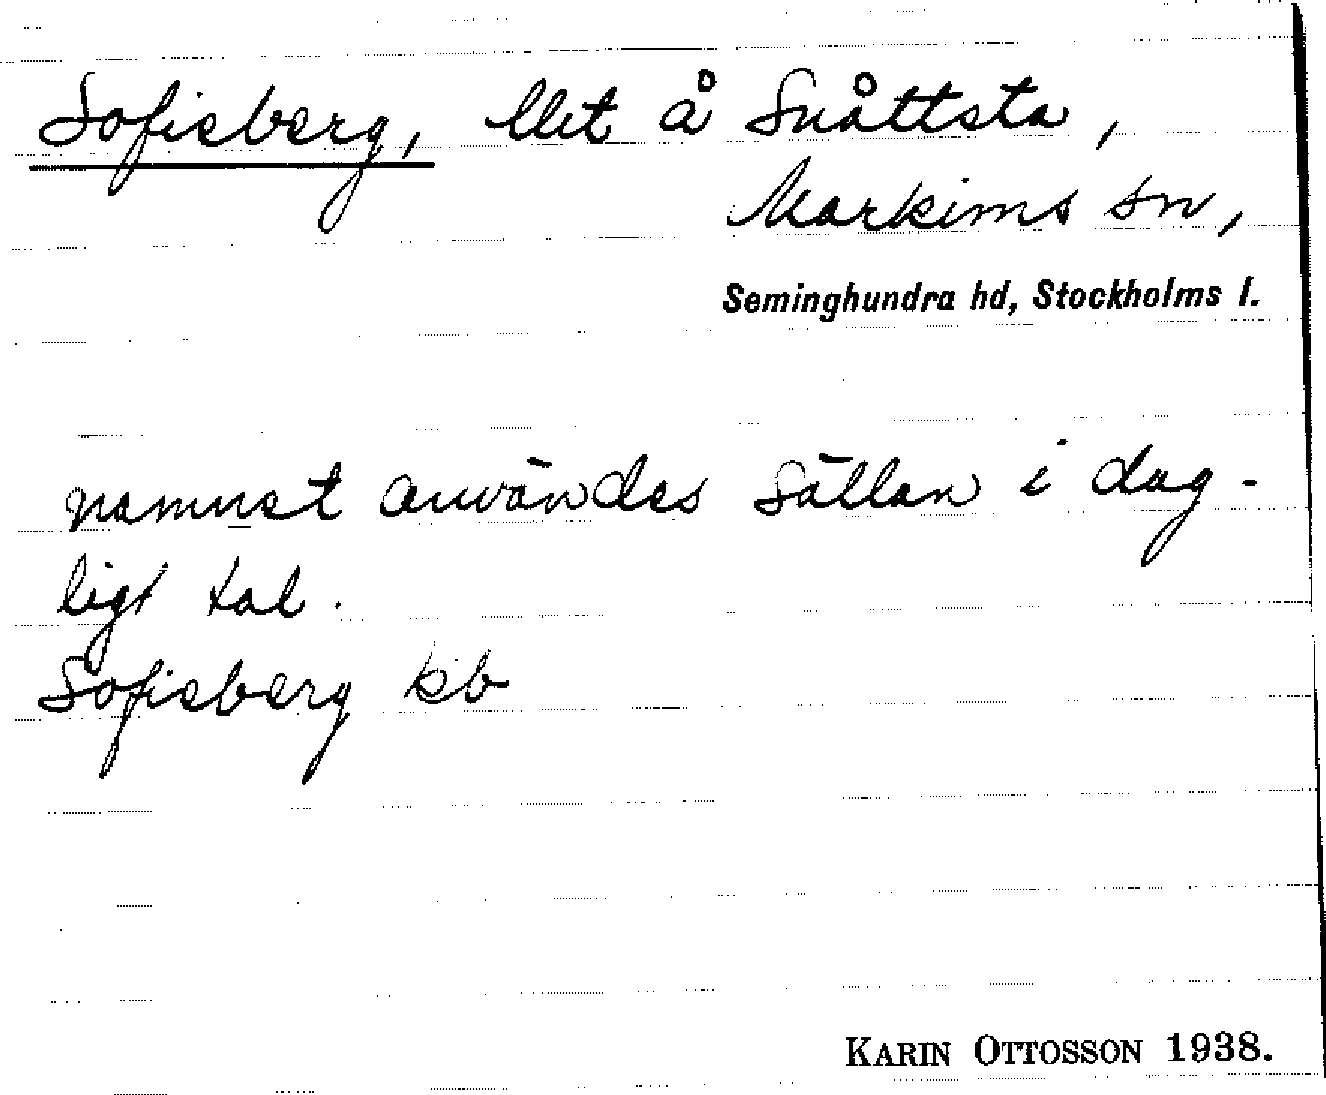 Sofieberg, llet å Snåttsta,
Markims sn,
Seminghundra hd, Stockholms l.
namnet användes sällan i dag-
ligt tal.
Sofieberg kb
KARIN OTTOSSON 1938.